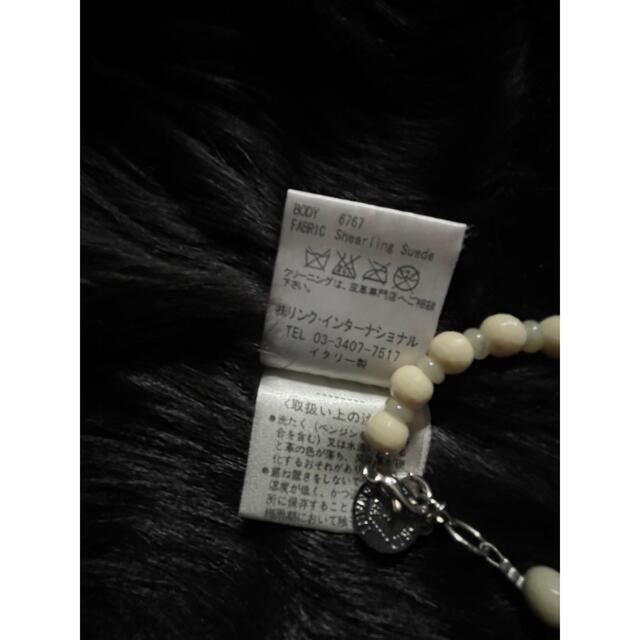 BODY 6767
FABRIC Shearling Suede
クリーニングは、皮革専門店へご相談
下さい。
㈱リンク・インターナショナル
TEL 03-3407-7517
イタリー製
〈取扱い上の注
●洗たく、(ベンジン
合を含む)又は水
と革の色が落ち、
化するおそれがあり
●重ね置きをしないで
湿度が低く、かつ
所に保存すること
梅雨期において